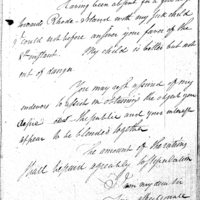 Having been absent for a few days
towards Rhode-Island with my sick child
I could not before answer your favor of the
instant. My child is better but not
out of danger.
You may rest assured of my
endeavors to assist in obtaining the object you
desire and the public and your interest
appear to be blended together
The amount of the
shall be paid agreeably to
I am my dear Sir